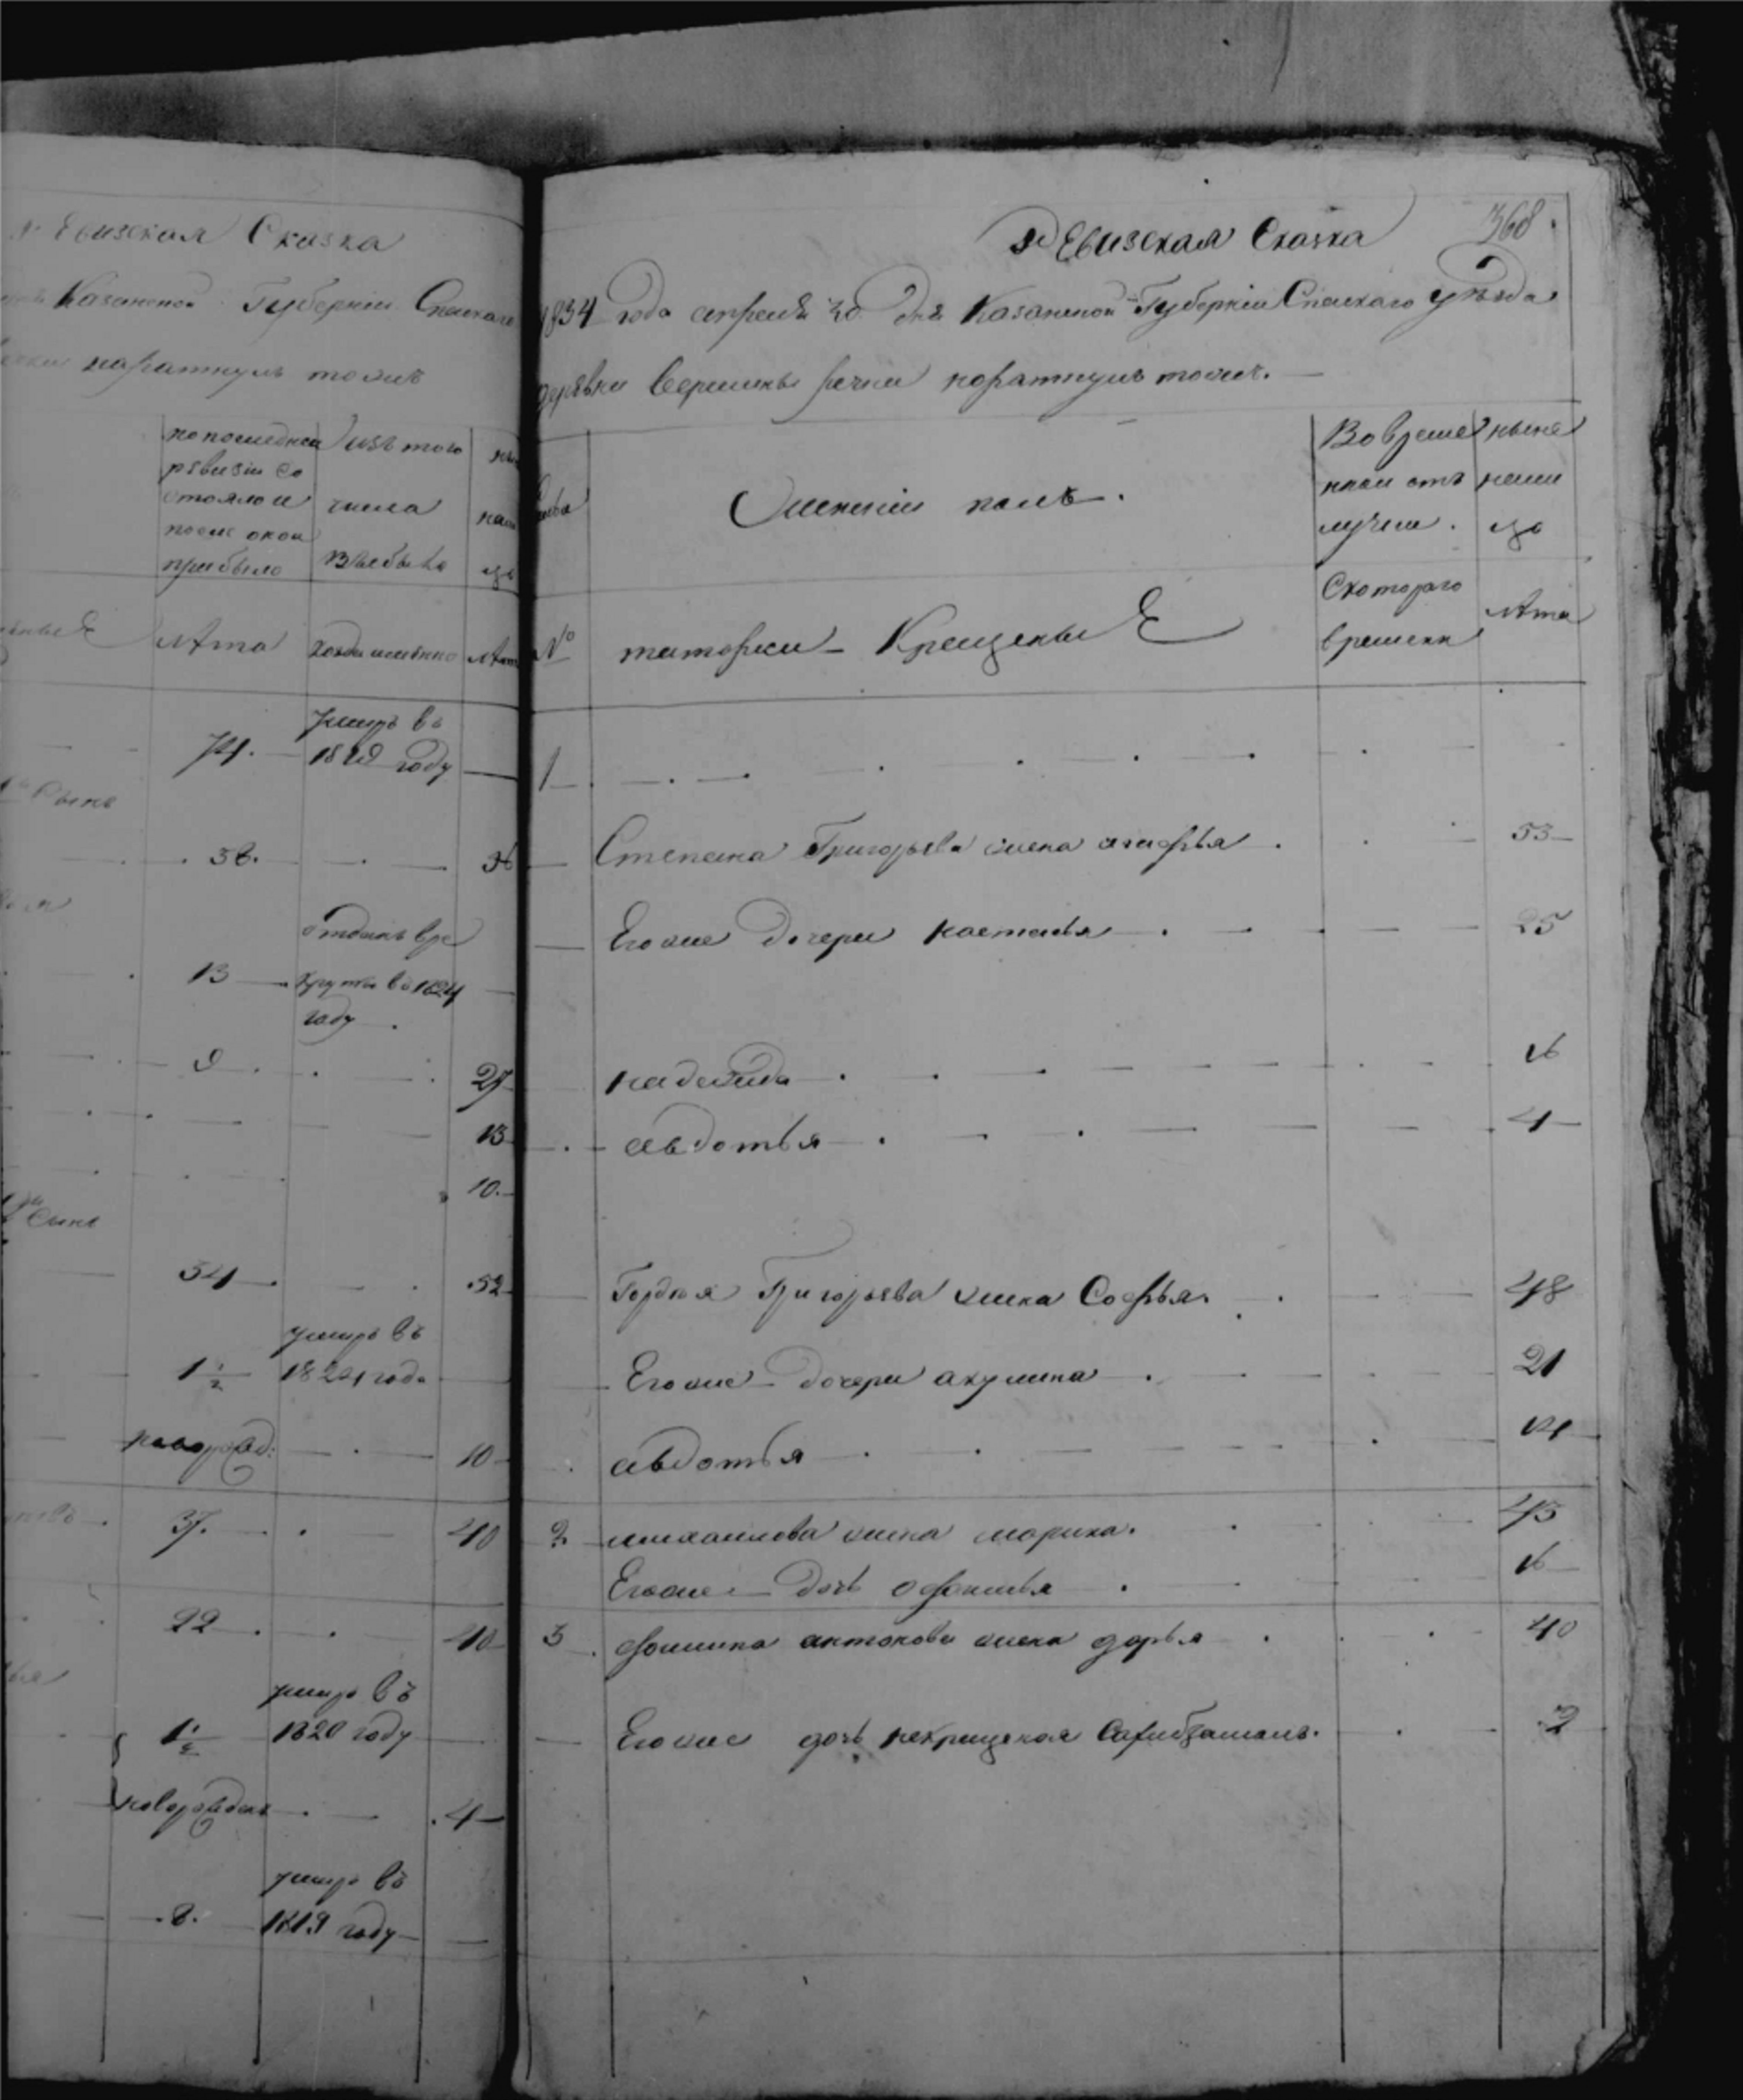 Ревизская Сказка
Казанской Губернии Спаскаго
караткуль тожъ
по последней ревизии со стояло и после онои прибыло
изъ того числа выбыло
Лета
когда имянно
74.
умиръ въ 1828 году
сынъ
36.
отданъ в ре круты в 1824 году
13
9
27
13
10.
сынъ
34
52
1 1/2
умиръ въ 1824 года
новорожд:
10
37.
40
22
40
1 1/2
умиръ въ 1820 году
новорожденъ
4
8.
умиръ въ 1819 году
368.
Ревизская Сказка
1834 года апреля 30 дня Казанской Губернии Спаскаго уезда
деревни Вершины речки караткуль тожъ.
Женскии полъ.
Во време нной отъ лучке.
ныне на ли цо
№
татарки Крещеные
С котораго времени
Лета
1
Степана Григорьева жена агафья
53
Егоже дочери настасья
25
надежда
16
авдотья
4
Гордея Григорьева жена Софья.
48
Егоже дочери акулина
21
авдотья
14
2 михаилова жена марина.
43
Егоже дочь офимья
16
3 фомина антонова жена дарья
40
Егоже дочь некрещеная
2